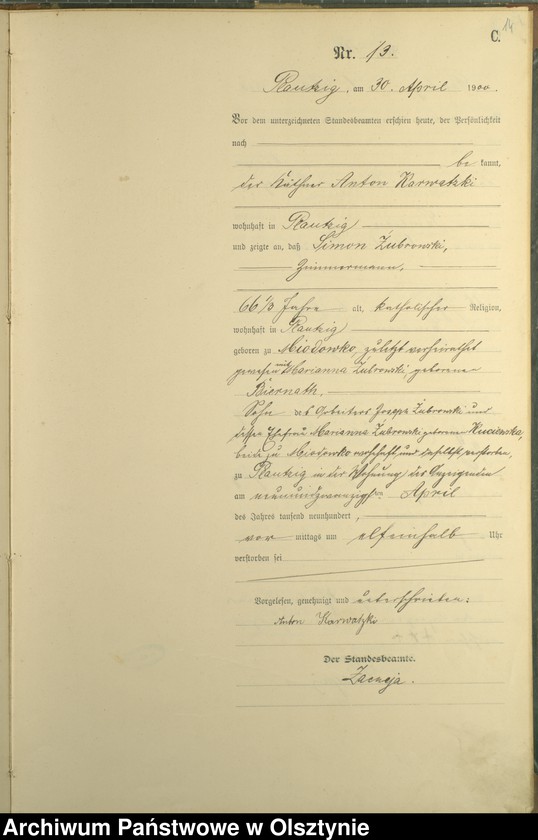 14
C.
Nr. 13.
Rautzig, am 30. April 1900.
Vor dem unterzeichneten Standesbeamten erschien heute, der Persönlichkeit
nach
bekannt,
der Käthner Anton Karwatzki
wohnhaft in Rautzig
und zeigte an, daß Simon Zubrowski,
Zimmermann,
66 1/3 Jahre alt, katholischer Religion,
wohnhaft in Rautzig
geboren zu Miodowko, zuletzt verheirathet
gewesen mit Marianna Zubrowski geborene
Biernath,
Sohn des Arbeiters Joseph Zubrowski und
dessen Ehefrau Marianna Zubrowski geborene
beide zu Miodowko wohnhaft und daselbst verstorben,
zu Rautzig in der Wohnung des Anzeigenden
am neunundzwanzigsten April
des Jahres tausend neunhundert,
vor mittags um elfeinhalb Uhr
verstorben sei
Vorgelesen, genehmigt und unterschrieben:
Anton Karwatzki
Der Standesbeamte.
Archiwum Państwowe w Olsztynie